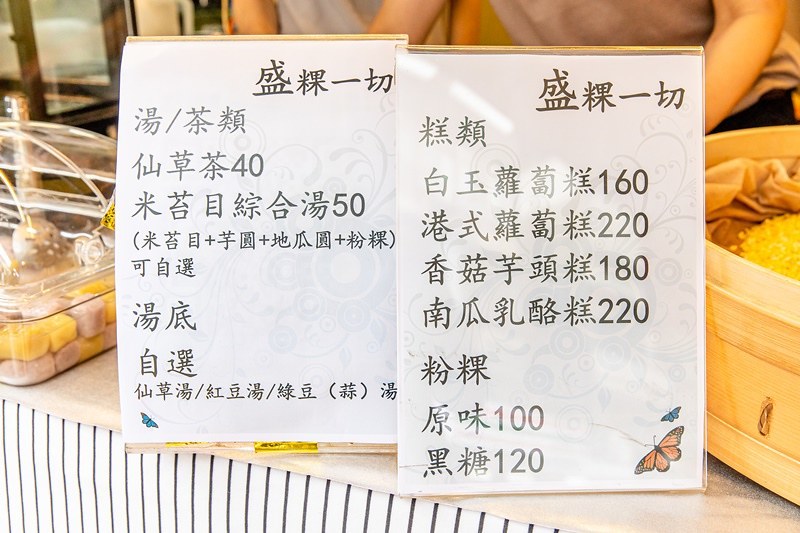 盛粿一切
湯/茶類
仙草茶40
米苔目綜合湯50
(米苔目+芋圓+地瓜圓+粉粿)
可自選
湯底
自選
仙草湯/紅豆湯/綠豆（蒜）湯
盛粿一切
糕類
白玉蘿蔔糕160
港式蘿蔔糕220
香菇芋頭糕180
南瓜乳酪糕220
粉粿
原味100
黑糖120